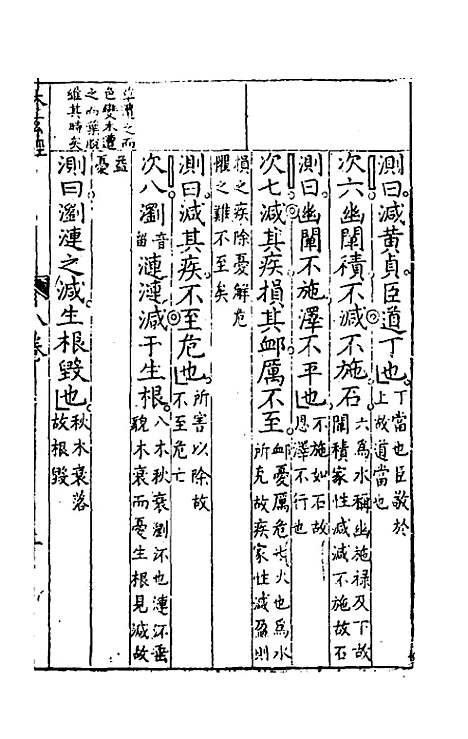 測曰減黃貞臣道丁也丁當也臣敬於上故道當也
次六幽闡積不減不施石六爲水稱幽施祿及下故闡積家性減減不施故石
測曰幽闡不施澤不平也不施如石故恩澤不行也
次七減其疾損其卹厲不至卹憂厲危也火也爲水所克故疾家性減盈則
損之疾除憂解危
懼之難不至矣
測曰減其疾不至危也所害以除故不至危亡
次八瀏音留漣漣減于生根八木秋衰瀏汗也漣汗垂貌木衰而憂生根見減故
益憂
測曰瀏漣之減生根毀也秋木衰落故根毀
之而
色變木遭
之而葉脫
維其時矣
太玄經
八卷